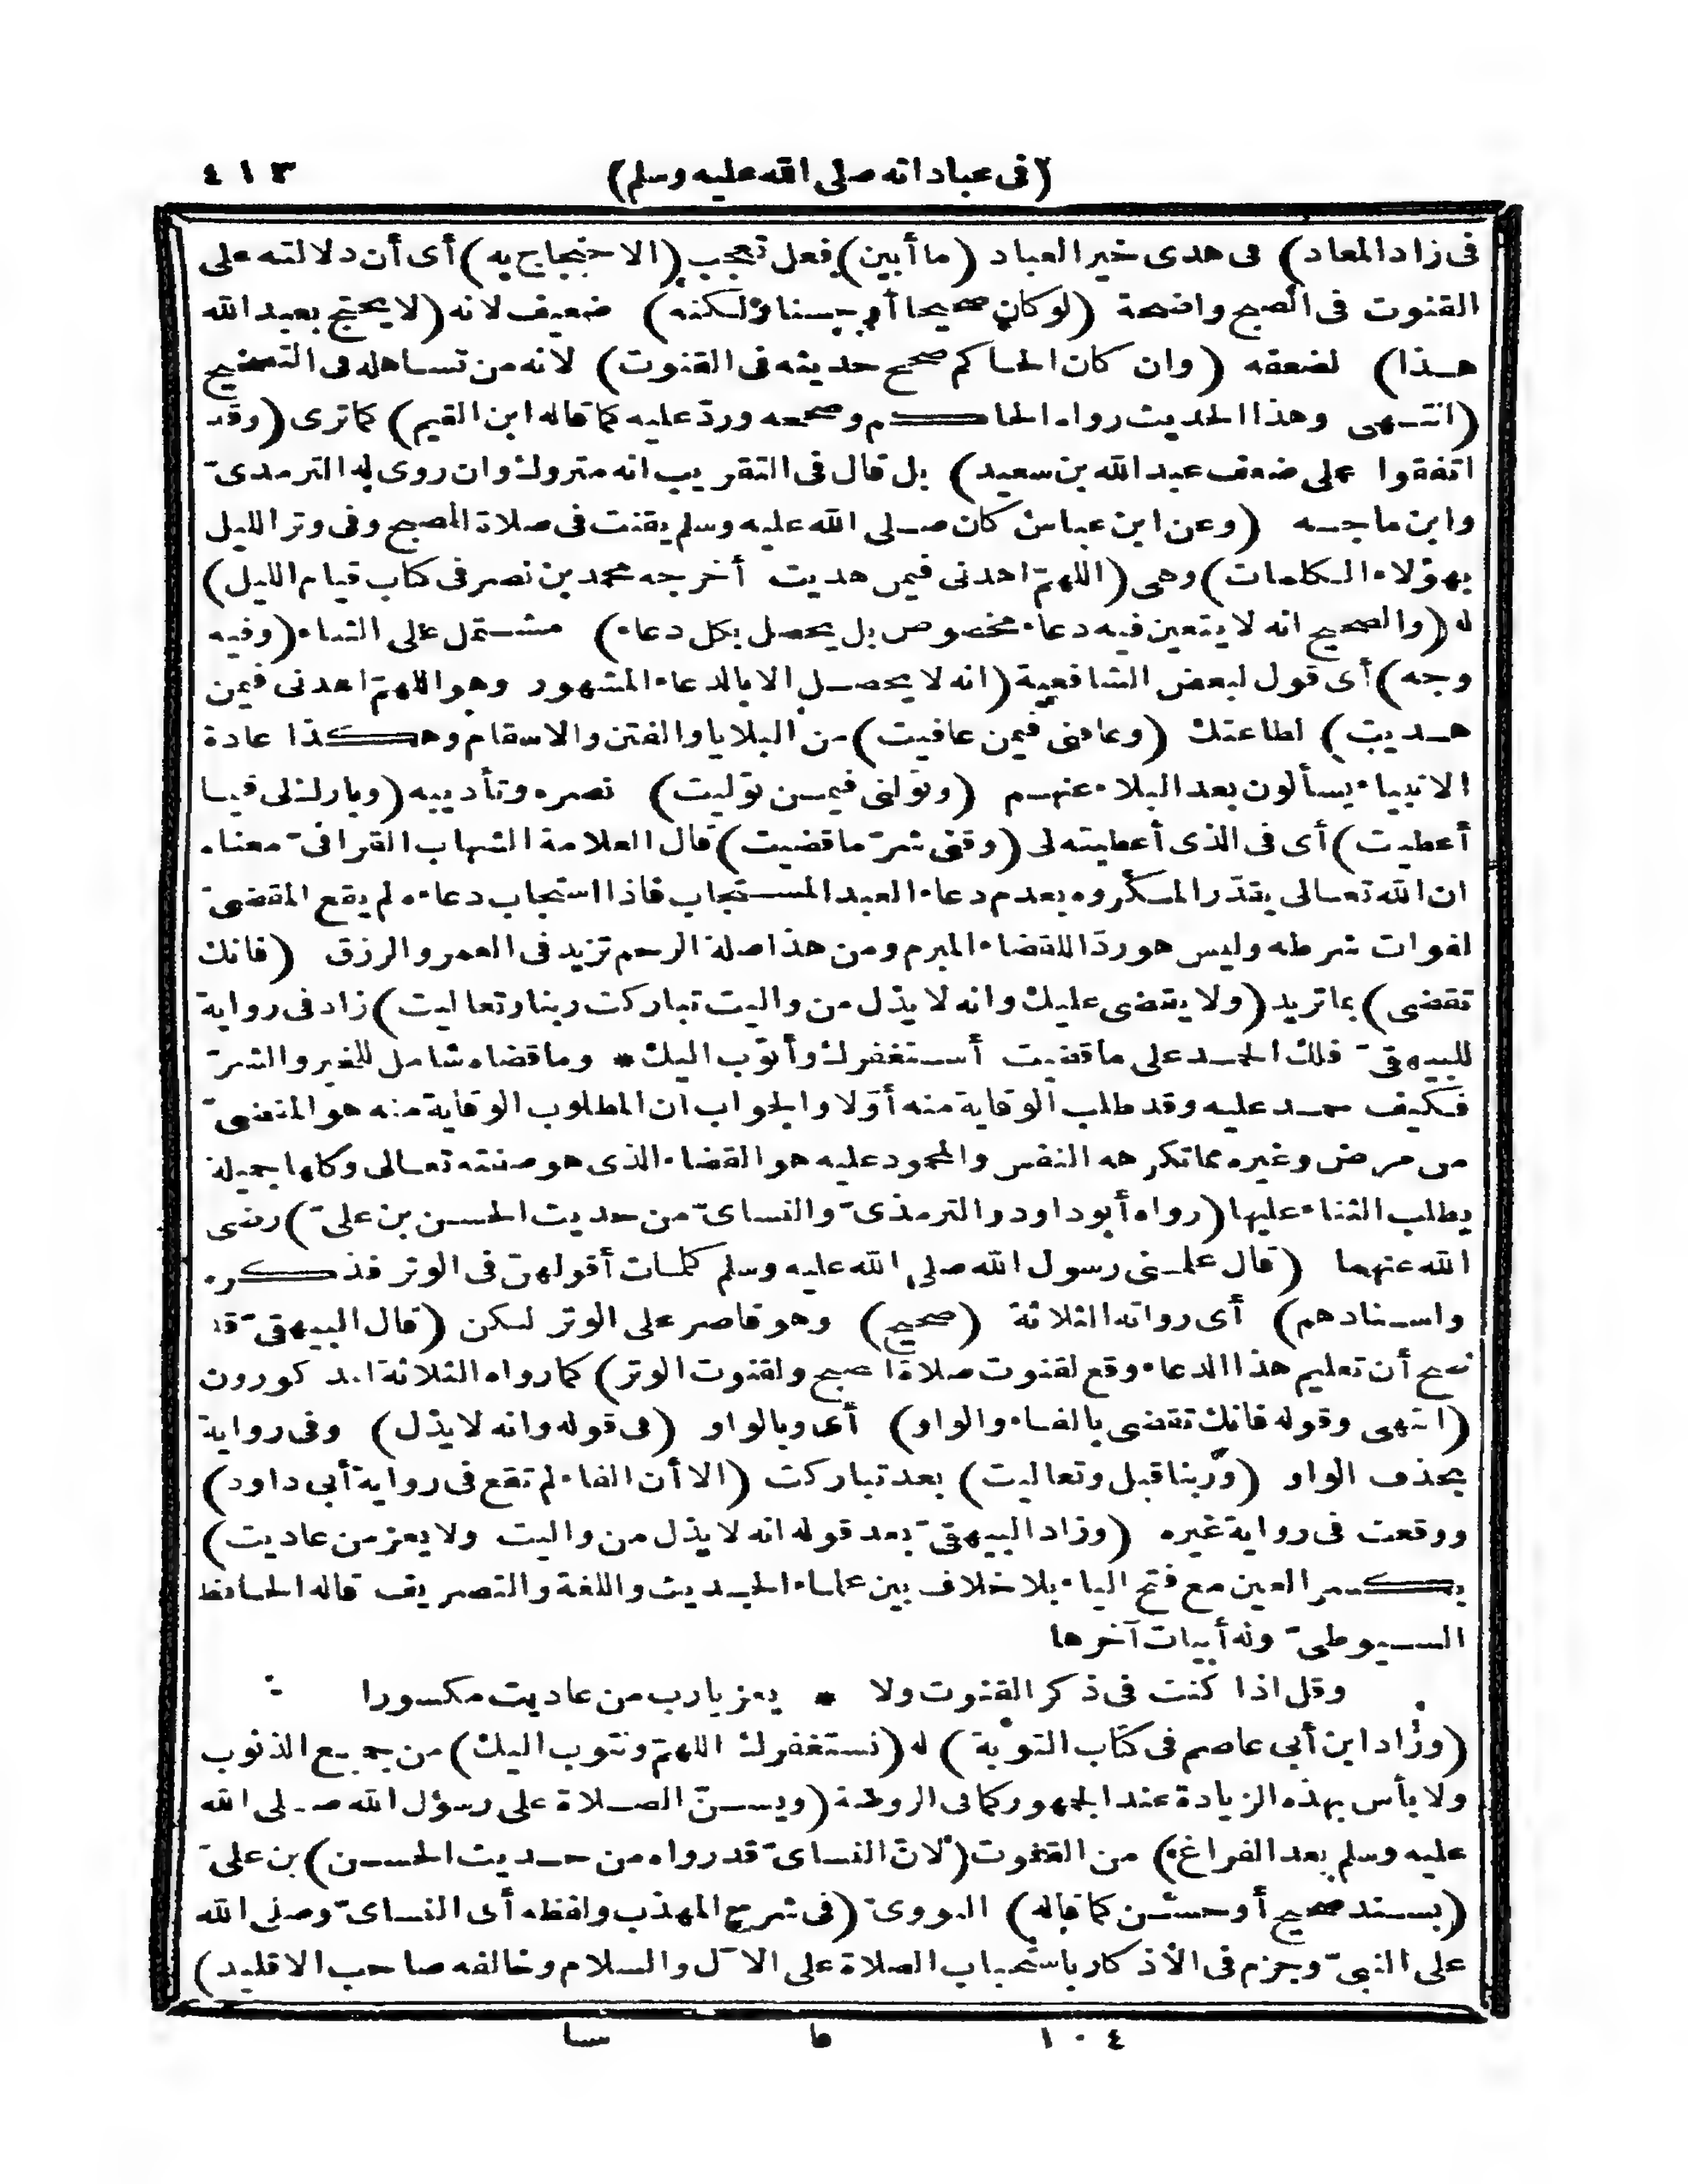 (فى عباداته صلى الله عليه وسلم) ٤١٣
فى زاد المعاد) فى هدى خير العباد (ما أبين) فعل تعجب (الاحتجاج به) أى أن دلالته على
القنوت فى الصبح واضحة (لو كان صحيحا أو حسنا ولكنه) ضعيف لانه (لا يحتج بعبد الله
هذا) لضعفه (وان كان الحاكم صحح حديثه فى القنوت) لانه من تساهله فى التصحيح
(انتهى وهذا الحديث رواه الحاكم وصححه وردّ عليه كما قاله ابن القيم) كما ترى (وقد
اتفقوا على ضعف عبد الله بن سعيد) بل قال فى التقريب انه متروك وان روى له الترمذىّ
وابن ماجه (وعن ابن عباس كان صلى الله عليه وسلم يقنت فى صلاة الصبح وفى وتر الليل
بهؤلاء الكلمات) وهى (اللهمّ اهدنى فيمن هديت أخرجه محمد بن نصر فى كتاب قيام الليل)
له (والصحيح انه لا يتعين فيه دعاء مخصوص بل يحصل بكل دعاء) مشتمل على الثناء (وفيه
وجه) أى قول لبعض الشافعية (انه لا يحصل الا بالدعاء المشهور وهو اللهمّ اهدنى فيمن
هديت) لطاعتك (وعافنى فيمن عافيت) من البلايا والفتن والاسقام وهكذا عادة
الانبياء يسألون بعد البلاء عنهم (وتولنى فيمن تولّيت) نصره وتأديبه (وبارك لى فيما
أعطيت) أى فى الذى أعطيته لى (وقنى شرّ ما قضيت) قال العلامة الشهاب القرافىّ معناه
ان الله تعالى يقدّر المكروه بعدم دعاء العبد المستجاب فاذا استجاب دعاءه لم يقع المقضىّ
لفوات شرطه وليس هو ردّا للقضاء المبرم ومن هذا صلة الرحم تزيد فى العمر والرزق (فانك
تقضى) بما تريد (ولا يقضى عليك وانه لا يذل من واليت تباركت ربنا وتعاليت) زاد فى رواية
للبيهقىّ فلك الحمد على ما قضيت أستغفرك وأتوب اليك * وما قضاه شامل للخير والشرّ
فكيف حمد عليه وقد طلب الوقاية منه أوّلا والجواب ان المطلوب الوقاية منه هو المقضىّ
من مرض وغيره مما تكرهه النفس والمحمود عليه هو القضاء الذى هو صفته تعالى وكلها جميلة
يطلب الثناء عليها (رواه أبو داود والترمذىّ والنساىّ من حديث الحسن بن علىّ) رضى
الله عنهما (قال علمنى رسول الله صلى الله عليه وسلم كلمات أقولهنّ فى الوتر فذكره
واسنادهم) أى رواته الثلاثة (صحيح) وهو قاصر على الوتر لكن (قال البيهقىّ قد
صح أن تعليم هذا الدعاء وقع لقنوت صلاة الصبح ولقنوت الوتر) كما رواه الثلاثة المذكورون
(انتهى وقوله فانك تقضى بالفاء والواو) أى وبالواو (فى قوله وانه لا يذل) وفى رواية
بحذف الواو (وربنا قبل وتعاليت) بعد تباركت (الا أن الفاء لم تقع فى رواية أبى داود)
ووقعت فى رواية غيره (وزاد البيهقىّ بعد قوله انه لا يذل من واليت ولا يعز من عاديت)
بكسر العين مع فتح الياء بلا خلاف بين علماء الحديث واللغة والتصريف قاله الحافظ
السيوطىّ وله أبيات آخرها
وقل اذا كنت فى ذكر القنوت ولا * يعز يا رب من عاديت مكسورا
(وزاد ابن أبى عاصم فى كتاب التوبة) له (نستغفرك اللهمّ ونتوب اليك) من جميع الذنوب
ولا بأس بهذه الزيادة عند الجمهور كما فى الروضة (ويسنّ الصلاة على رسول الله صلى الله
عليه وسلم بعد الفراغ) من القنوت (لانّ النساىّ قد رواه من حديث الحسن) بن علىّ
(بسند صحيح أو حسن كما قاله) النووىّ (فى شرح المهذب ولفظه أى النساىّ وصلى الله
على النبىّ وجزم فى الأذكار باستحباب الصلاة على الآل والسلام وخالفه صاحب الاقليد)
١٠٤ ما سا